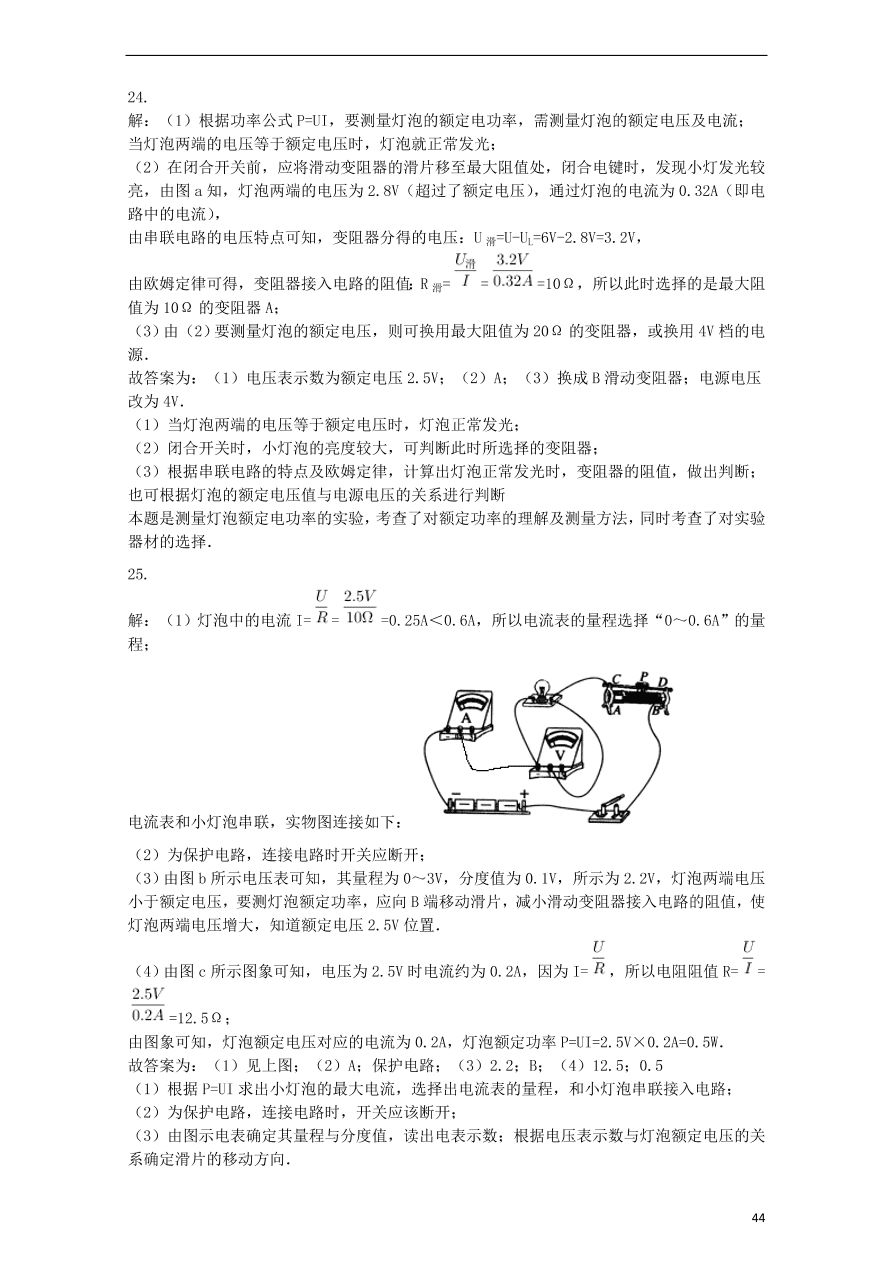 24.
解：（1）根据功率公式 P=UI，要测量灯泡的额定电功率，需测量灯泡的额定电压及电流；
当灯泡两端的电压等于额定电压时，灯泡就正常发光；
（2）在闭合开关前，应将滑动变阻器的滑片移至最大阻值处，闭合电键时，发现小灯发光较
亮，由图 a 知，灯泡两端的电压为 2.8V（超过了额定电压），通过灯泡的电流为 0.32A（即电
路中的电流），
由串联电路的电压特点可知，变阻器分得的电压：U滑=U-UL=6V-2.8V=3.2V，
由欧姆定律可得，变阻器接入电路的阻值：R滑=U滑/I=3.2V/0.32A=10Ω，所以此时选择的是最大阻
值为 10Ω 的变阻器 A；
（3）由（2）要测量灯泡的额定电压，则可换用最大阻值为 20Ω 的变阻器，或换用 4V 档的电
源．
故答案为：（1）电压表示数为额定电压 2.5V；（2）A；（3）换成 B 滑动变阻器；电源电压
改为 4V．
（1）当灯泡两端的电压等于额定电压时，灯泡正常发光；
（2）闭合开关时，小灯泡的亮度较大，可判断此时所选择的变阻器；
（3）根据串联电路的特点及欧姆定律，计算出灯泡正常发光时，变阻器的阻值，做出判断；
也可根据灯泡的额定电压值与电源电压的关系进行判断
本题是测量灯泡额定电功率的实验，考查了对额定功率的理解及测量方法，同时考查了对实验
器材的选择．
25.
解：（1）灯泡中的电流 I=U/R=2.5V/10Ω=0.25A＜0.6A，所以电流表的量程选择“0～0.6A”的量
程；
C P D
A B
A
V
− +
电流表和小灯泡串联，实物图连接如下：
（2）为保护电路，连接电路时开关应断开；
（3）由图 b 所示电压表可知，其量程为 0～3V，分度值为 0.1V，所示为 2.2V，灯泡两端电压
小于额定电压，要测灯泡额定功率，应向 B 端移动滑片，减小滑动变阻器接入电路的阻值，使
灯泡两端电压增大，知道额定电压 2.5V 位置．
（4）由图 c 所示图象可知，电压为 2.5V 时电流约为 0.2A，因为 I=U/R，所以电阻阻值 R=U/I=
2.5V/0.2A=12.5Ω；
由图象可知，灯泡额定电压对应的电流为 0.2A，灯泡额定功率 P=UI=2.5V×0.2A=0.5W．
故答案为：（1）见上图；（2）A；保护电路；（3）2.2；B；（4）12.5；0.5
（1）根据 P=UI 求出小灯泡的最大电流，选择出电流表的量程，和小灯泡串联接入电路；
（2）为保护电路，连接电路时，开关应该断开；
（3）由图示电表确定其量程与分度值，读出电表示数；根据电压表示数与灯泡额定电压的关
系确定滑片的移动方向．
44